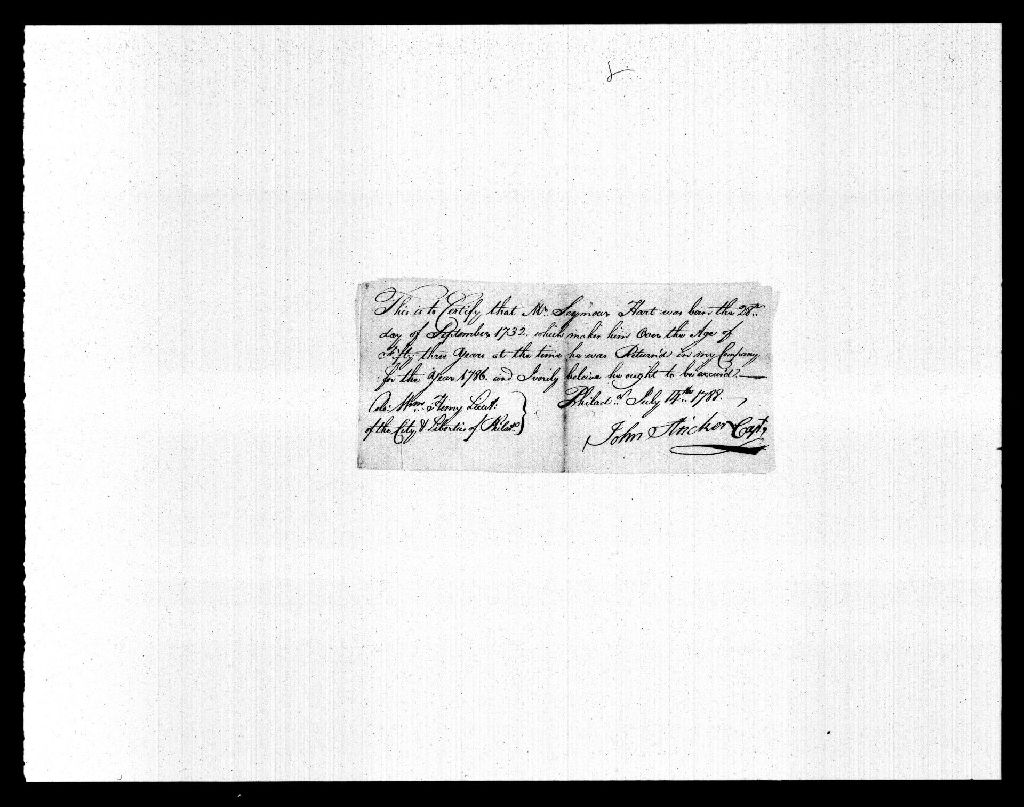 This is to Certify that Mr. Seymour Hart was born the 28th
day of September 1732. which makes him Over the Age of
Fifty three Years at the time he was Return'd in my Company
for the Year 1786. and I verily beleive he ought to be excus'd.
Philada. July 14th 1788.
Colo. Wm. Henry Lieut.
of the City & Liberties of Philada.
John Stricker Capt.